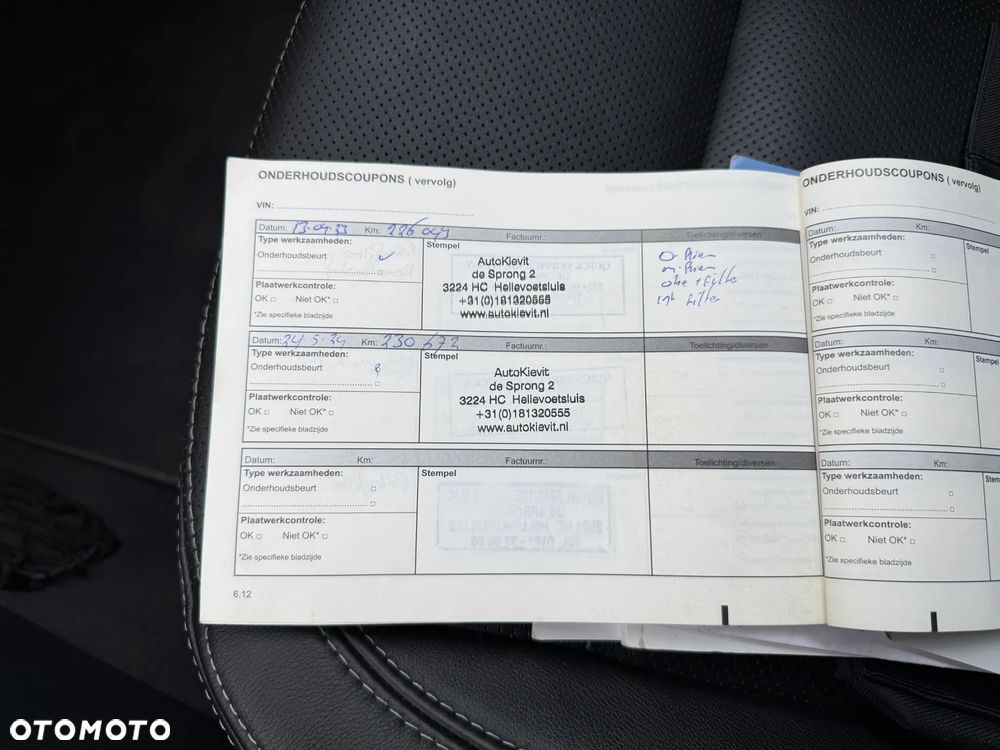 ONDERHOUDSCOUPONS ( vervolg)
VIN:
Datum: 13-04-23 Km: 226 049 Factuurnr.: Toelichting/diversen
Type werkzaamheden:
Stempel
Onderhoudsbeurt
Plaatwerkcontrole:
OK Niet OK*
*Zie specifieke bladzijde
AutoKievit
de Sprong 2
3224 HC Hellevoetsluis
+31(0)181320555
www.autokievit.nl
Datum: 24-5-24 Km: 230 672 Factuurnr.: Toelichting/diversen
Type werkzaamheden:
Stempel
Onderhoudsbeurt
Plaatwerkcontrole:
OK Niet OK*
*Zie specifieke bladzijde
AutoKievit
de Sprong 2
3224 HC Hellevoetsluis
+31(0)181320555
www.autokievit.nl
Datum: Km: Factuurnr.: Toelichting/diversen
Type werkzaamheden:
Stempel
Onderhoudsbeurt
Plaatwerkcontrole:
OK Niet OK*
*Zie specifieke bladzijde
6.12
ONDERHOUDSCOUPONS ( vervolg)
VIN:
Datum: Km:
Type werkzaamheden:
Stempel
Onderhoudsbeurt
Plaatwerkcontrole:
OK Niet OK*
*Zie specifieke bladzijde
Datum: Km:
Type werkzaamheden:
Stempel
Onderhoudsbeurt
Plaatwerkcontrole:
OK Niet OK*
*Zie specifieke bladzijde
Datum: Km:
Type werkzaamheden:
Onderhoudsbeurt
Plaatwerkcontrole:
OK Niet OK*
*Zie specifieke bladzijde
OTOMOTO